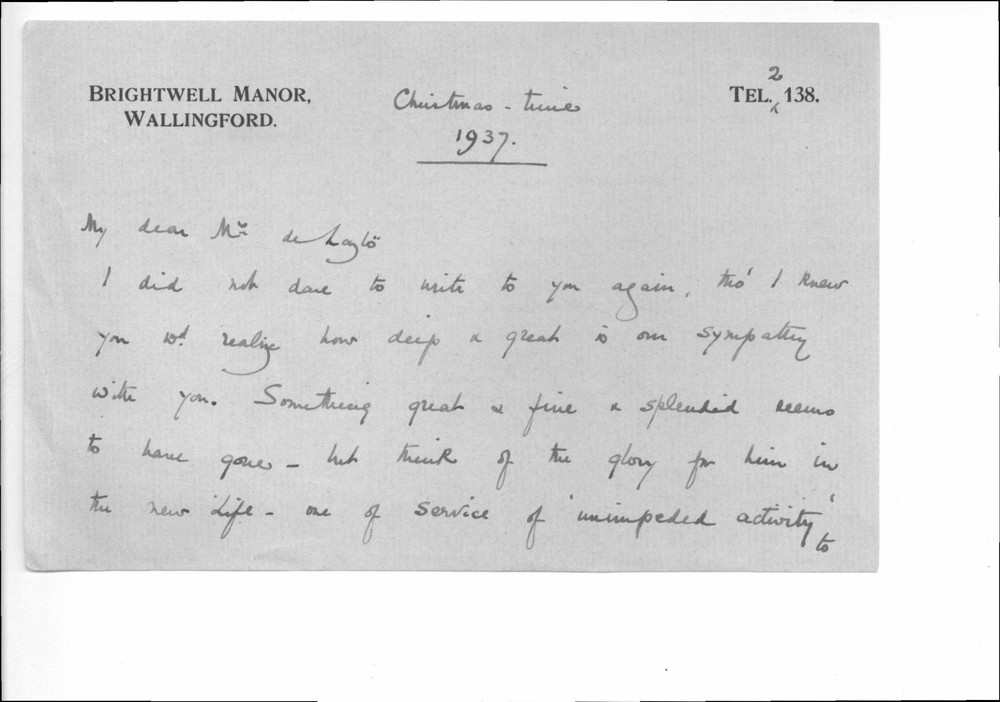 BRIGHTWELL MANOR,
WALLINGFORD.
Christmas - time
1937.
TEL. 2138.
My dear Mrs de Laszlo
I did not dare to write to you again, tho' I knew
you wd. realize how deep & great is our sympathy
with you. Something great & fine & splendid seems
to have gone - but think of the glory for him in
the new Life - one of service of 'unimpeded activity' to